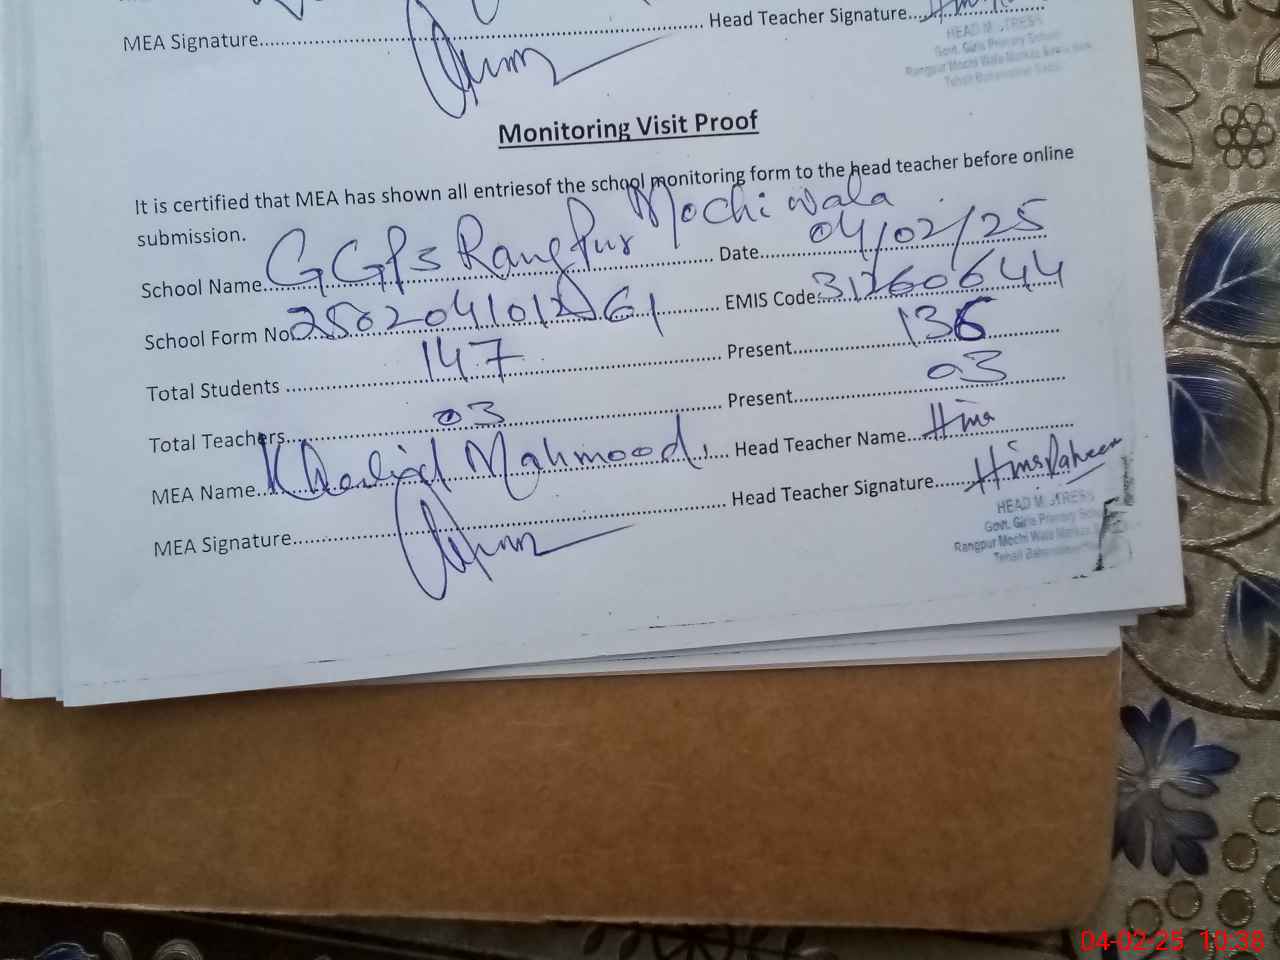 MEA Signature........ Head Teacher Signature........
HEAD MISTRESS
Govt. Girls Primary School
Rangpur Mochi Wala Markaz
Monitoring Visit Proof
It is certified that MEA has shown all entriesof the school monitoring form to the head teacher before online
submission.
School Name........GGPS Rangpur Mochi wala........ Date........04/02/25
School Form No........250204101261........ EMIS Code........31260644
Total Students ........147........ Present........136
Total Teachers........03........ Present........03
MEA Name........Khalid Mahmood........ Head Teacher Name........Hina
MEA Signature........ Head Teacher Signature........
HEAD MISTRESS
Govt. Girls Primary School
Rangpur Mochi Wala Markaz
04-02-25 10:38